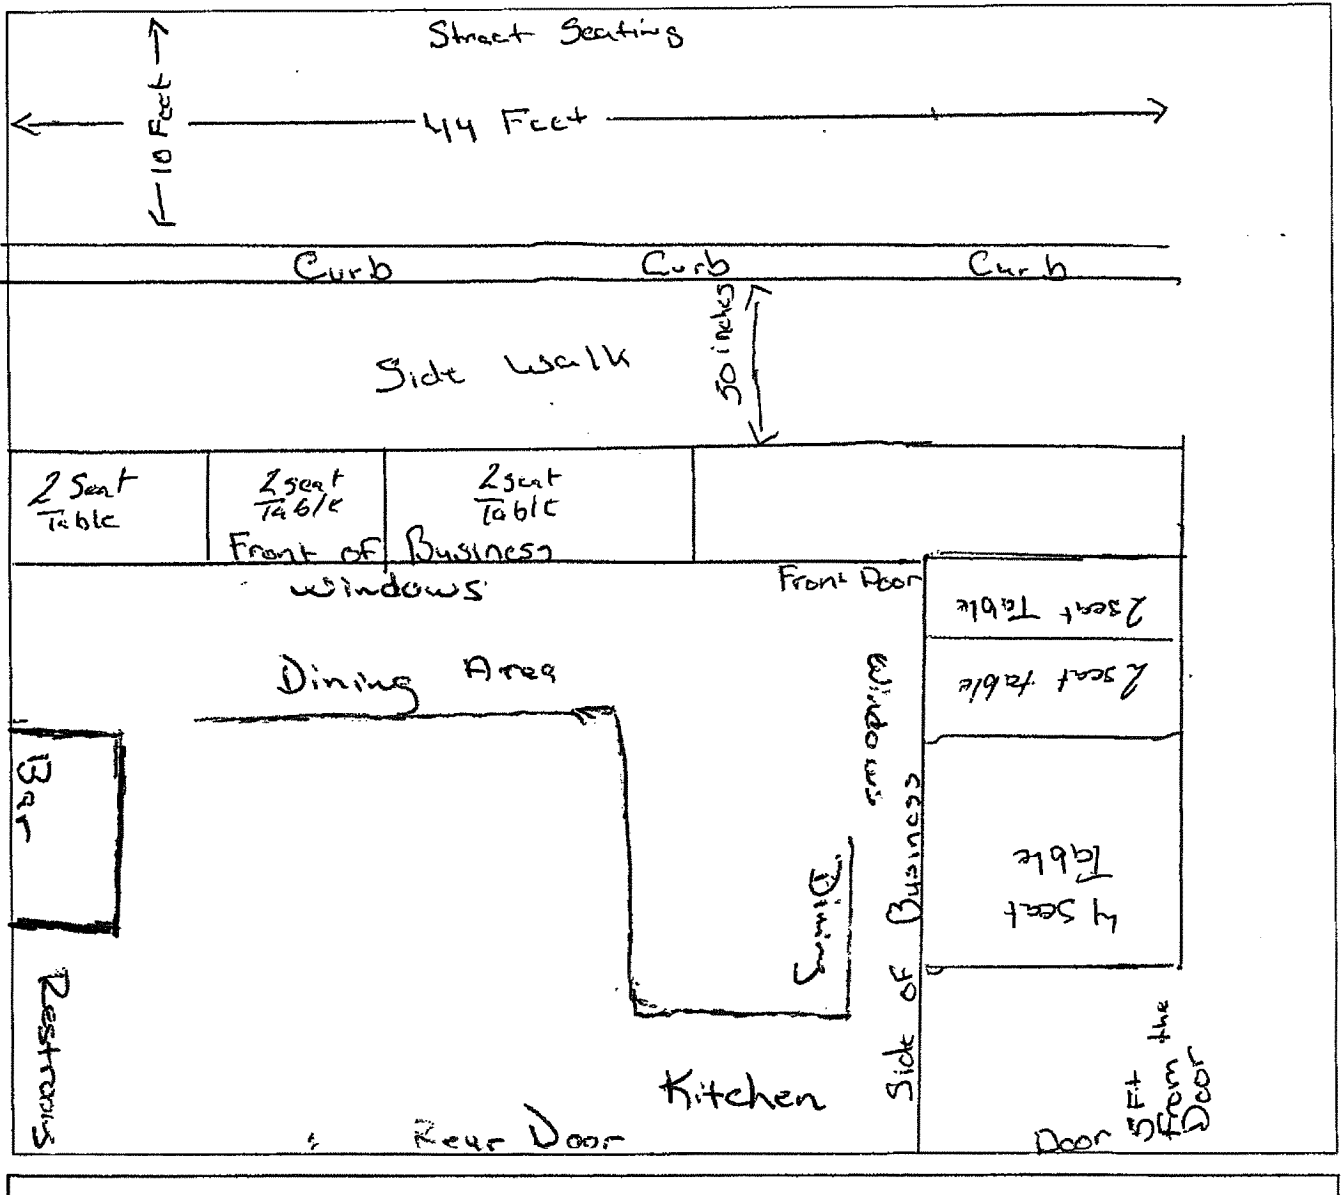 Street Seating
10 Feet
44 Feet
Curb Curb Curb
50 inches
Side Walk
2 Seat
Table
2 seat
Table
2 seat
Table
Front of Business
windows
Front Door
2 seat Table
Dining Area
2 seat table
windows
Bar
4 Seat
Table
Dining
Side of Business
Restrooms
Kitchen
Rear Door
Door
5 Ft
From the
Door